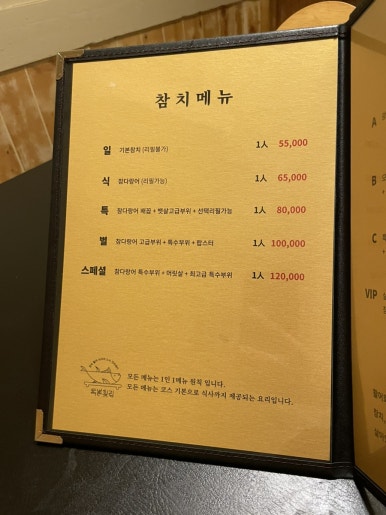 참치메뉴
일 기본참치 (리필불가) 1人 55,000
식 참다랑어 (리필가능) 1人 65,000
특 참다랑어 배꼽 + 뱃살고급부위 + 선택리필가능 1人 80,000
별 참다랑어 고급부위 + 특수부위 + 랍스타 1人 100,000
스페셜 참다랑어 특수부위 + 머릿살 + 최고급 특수부위 1人 120,000
모든 메뉴는 1인 1메뉴 원칙 입니다.
모든 메뉴는 코스 기본으로 식사까지 제공되는 요리입니다.
A
B
C
VIP